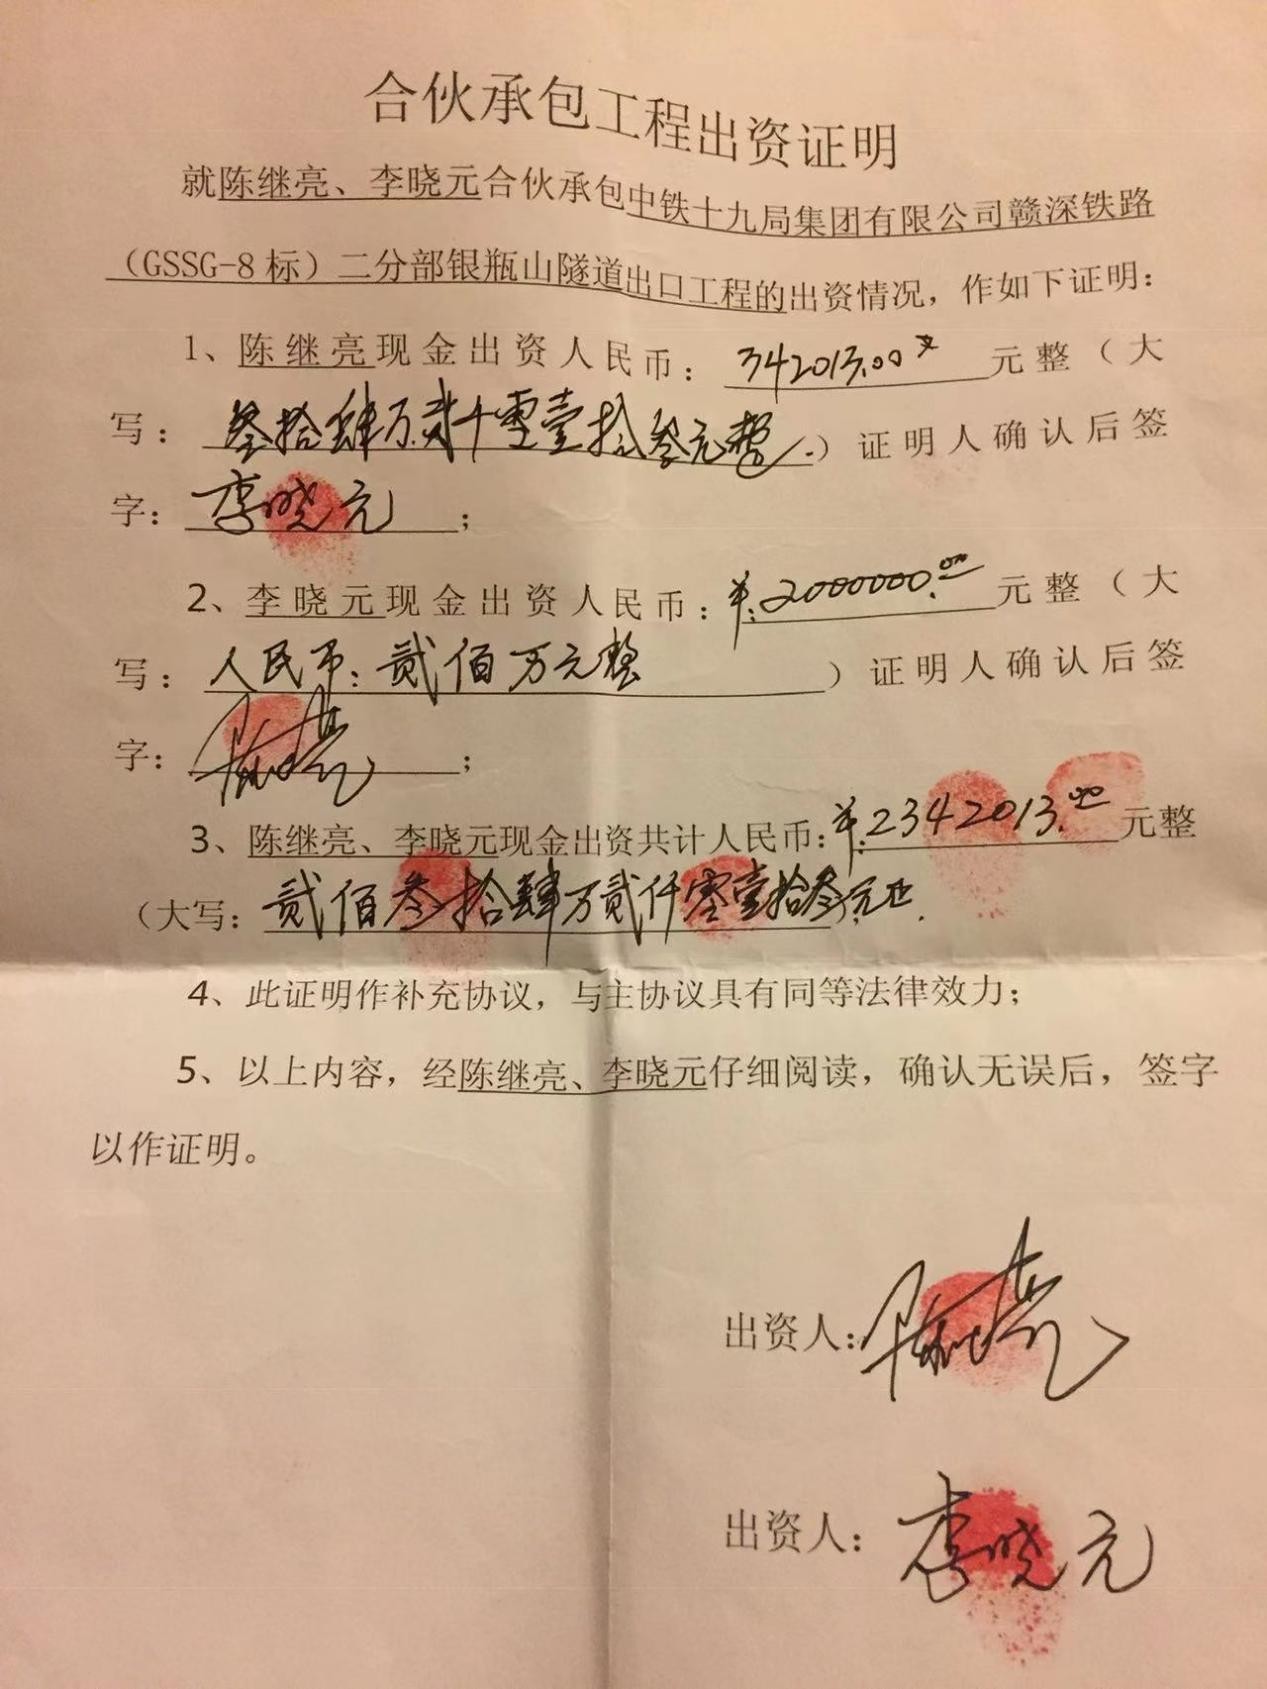 合伙承包工程出资证明
就陈继亮、李晓元合伙承包中铁十九局集团有限公司赣深铁路
（GSSG-8 标）二分部银瓶山隧道出口工程的出资情况，作如下证明：
1、陈继亮现金出资人民币：342013.00 元整（大
写：叁拾肆万贰千零壹拾叁元整.）证明人确认后签
字：李晓元；
2、李晓元现金出资人民币：¥:2000000.00元整（大
写：人民币:贰佰万元整）证明人确认后签
字：；
3、陈继亮、李晓元现金出资共计人民币：¥:2342013.00元整
（大写：贰佰叁拾肆万贰仟零壹拾叁元正.
4、此证明作补充协议，与主协议具有同等法律效力；
5、以上内容，经陈继亮、李晓元仔细阅读，确认无误后，签字
以作证明。
出资人：
出资人：李晓元